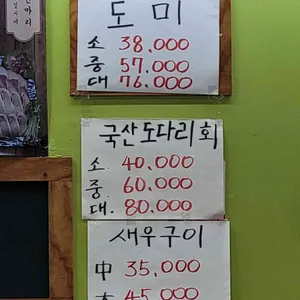 도미
소 38,000
중 57,000
대 76,000
국산도다리회
소. 40,000
중. 60,000
대. 80,000
새우구이
中 35,000
大 45,000